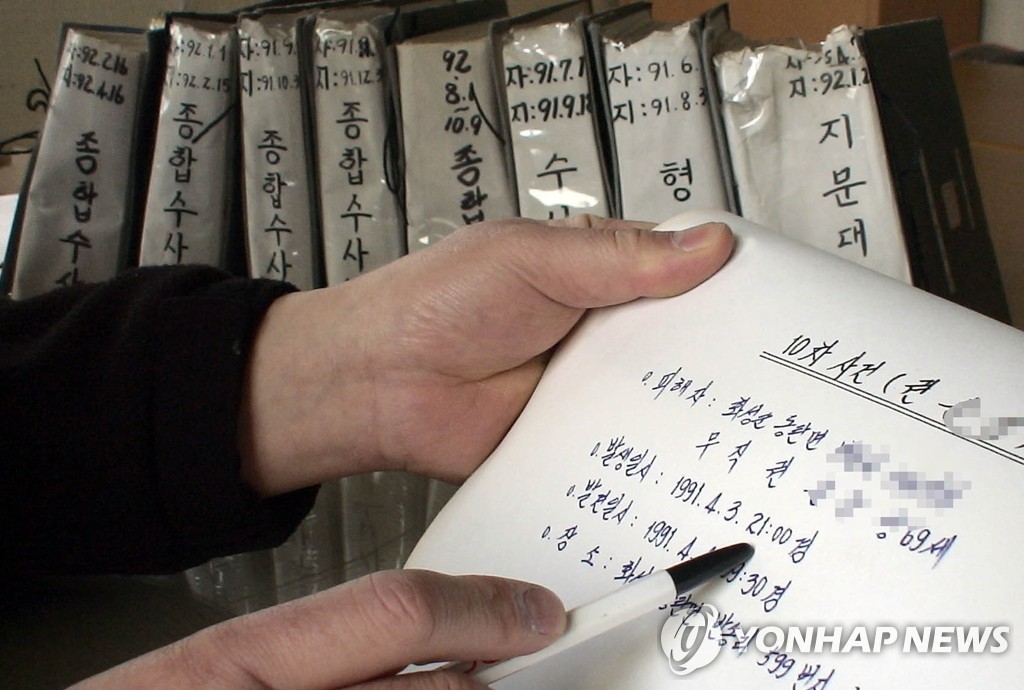 자:92.2.16
지:92.4.16
종합수사
지:92.2.15
종합수사
지:91.10.3
종합수사
지:91.12.3
종합수사
92
8.1
~
10.9
종합
자:91.7.1
지:91.9.18
수사
자:91.6.
지:91.8.3
형
지:92.1.2
지문대
10차 사건 (권
o. 피해자 : 화성군 동탄면
무직 권 69세
o. 발생일시 : 1991. 4. 3. 21:00경
o. 발견일시 : 1991. 4. 9:30경
o. 장소 : 화성 동탄면 반송리 599번지
YONHAP NEWS